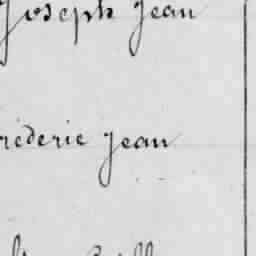 Joseph Jean
réderie Jean